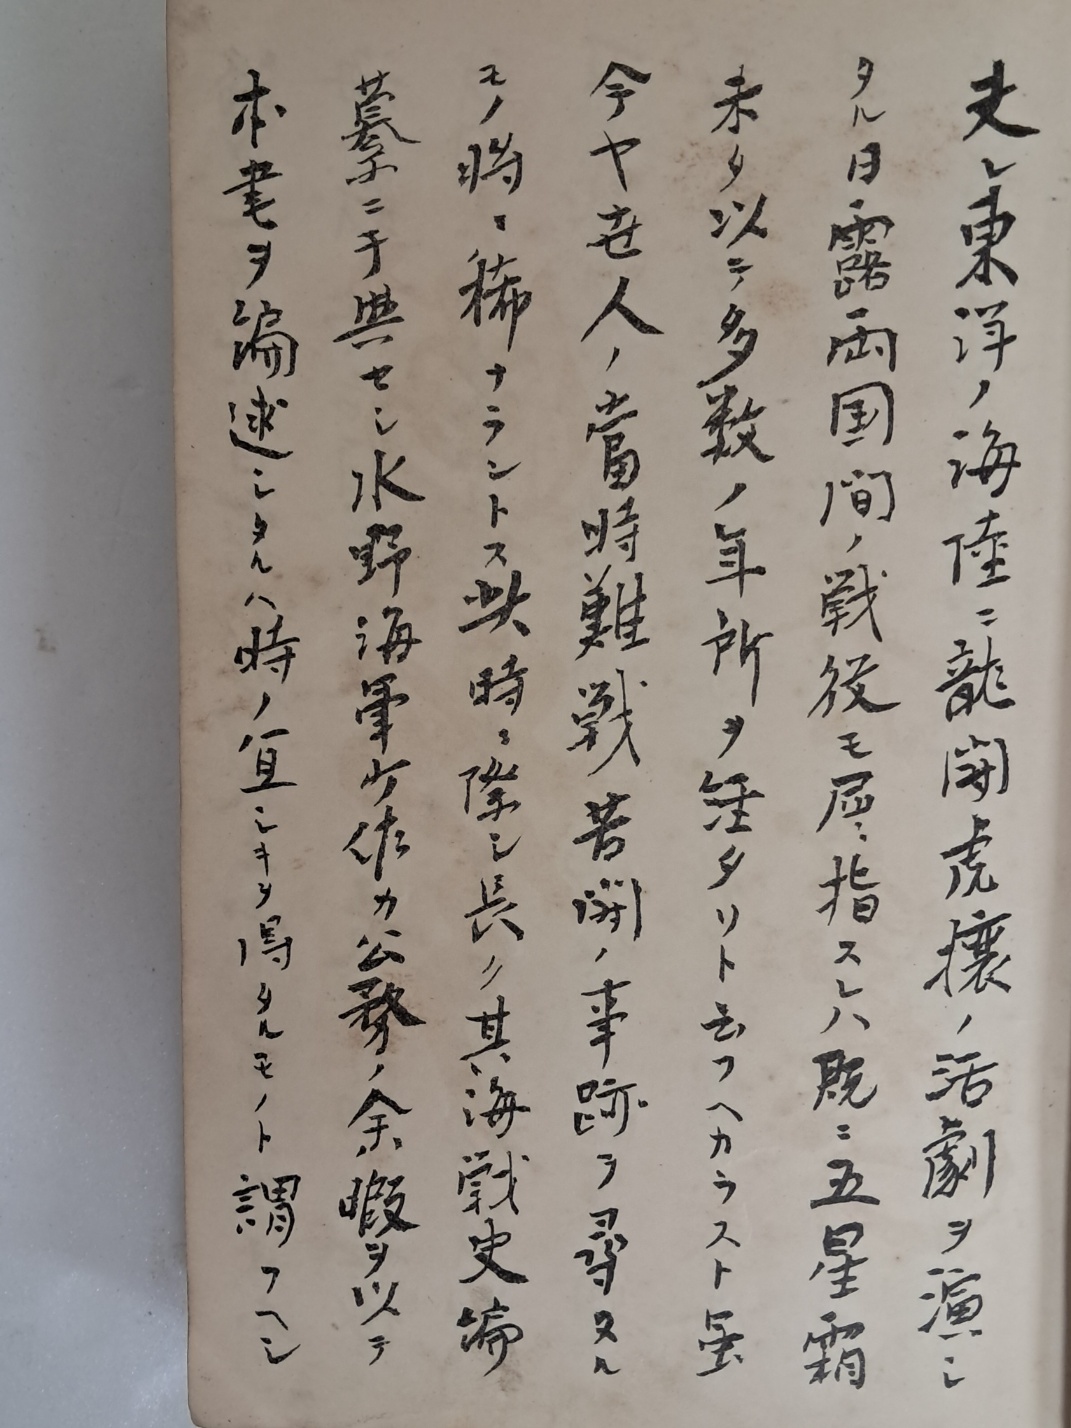 夫レ東洋ノ海陸ニ龍闘虎攘ノ活劇ヲ演シ
タル日露両国間ノ戦役モ屈ニ指スレハ既ニ五星霜
未タ以テ多数ノ年所ヲ経タリト云フヘカラスト虽
今ヤ世人ノ當時難戦苦闘ノ事跡ヲ尋ヌル
モノ将ニ稀ナラントス此時ニ際シ長ク其海戦史編
纂ニ干與セシ水野海軍少佐カ公務ノ余暇ヲ以テ
本書ヲ編述シタルハ時ノ宜シキヲ得タルモノト謂フヘシ